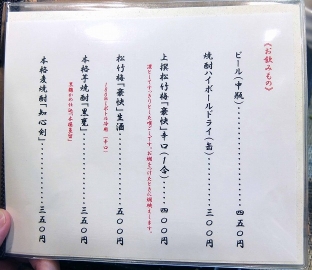 《お飲みもの》
ビール(中瓶)..........四五〇円
焼酎ハイボールドライ(缶)......三〇〇円
上撰松竹梅「豪快」辛口(一合)....四〇〇円
松竹梅「豪快」生酒..........五〇〇円
本格芋焼酎『黒甕』..........三五〇円
本格麦焼酎「知心剣」..........三五〇円